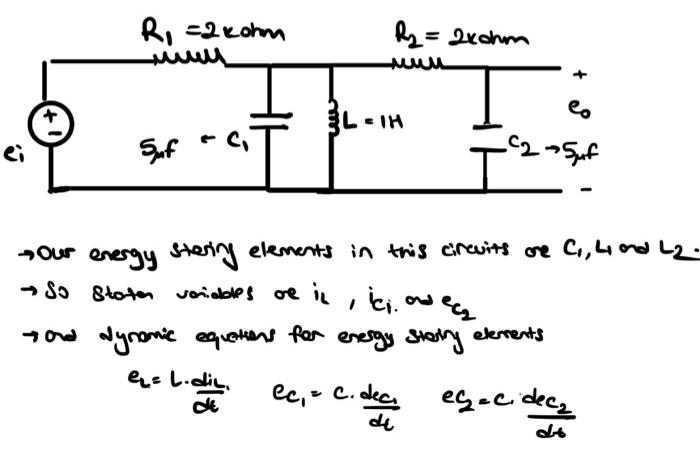 R₁ = 2kohm
R₂ = 2kohm
+
eₒ
-
+
-
eᵢ
5μf ← C₁
L = 1H
C₂ → 5μf
→ Our energy storing elements in this circuits are C₁, L₁ and L₂.
→ So States variables are iL, iC₁. and eC₂
→ and dynamic equations for energy storing elements
eL = L. diL./dt eC₁ = C. deC₁/dt eC₂ = C. deC₂/dt